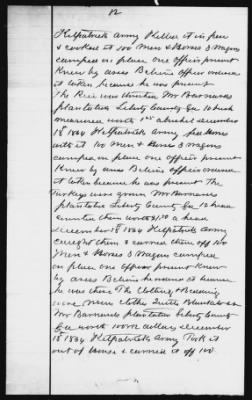 12
Kilpatricks army Killed it in pen
& cooked it 100 Men & Horses 3 Wagons
camped on place one officer present
Knew by asses Believe officer ordered
it taken because he was present
The Rice was Mr Barnards
plantation Liberty County Ga 10 bush
measured worth 1.00 a bushel december
18th 1864 Kilpatricks army fed Horses
with it 100 Men & Horses 3 Wagons
camped on place one officer present
Knew by asses Believe officer ordered
it taken because he was present The
Turkeys were grown Mr Barnards
plantation Liberty County Ga 12 head
counted them worth a head
december 18th 1864 Kilpatricks army
caught them & carried them off 100
Men & Horses 3 Wagons camped
on place one officer present Knew
by asses Believe he knew it because
he was there The Clothing & Bedding
were Mens clothes Quilts Blankets on
Mr Barnards plantation Liberty County
Ga worth dollars december
18th 1864 Kilpatricks Army Took it
out of House & carried it off 100